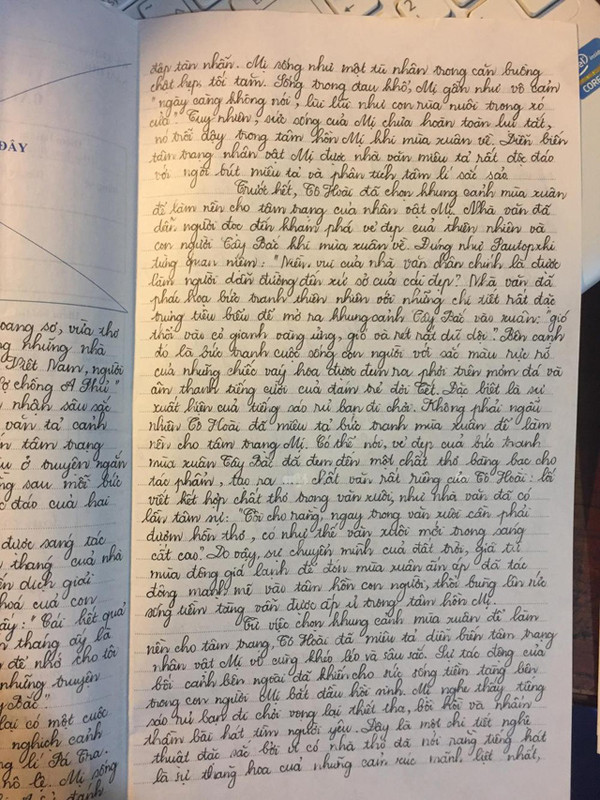 ĐÂY
CORE
oang sơ, vừa thơ
ng những nhà
Việt Nam, người
Vợ chồng A Phủ"
nhận sâu sắc
văn tả cảnh
ễn tâm trạng
ở truyện ngắn
ng sau mỗi bức
c đáo của hai
được sáng tác
thang của nhà
ến dịch giải
hoá của con
ầy: "Cái kết quả
tháng ấy là
để nhớ cho tôi
những truyện
y Bắc."
lại có một cuộc
nghịch cảnh
ng lí Pá Tra.
nô lệ. Mị sống
đánh
đập tàn nhẫn. Mị sống như một tù nhân trong căn buồng
chật hẹp, tối tăm. Sống trong đau khổ, Mị gần như vô cảm
"ngày càng không nói, lùi lũi như con rùa nuôi trong xó
cửa." Tuy nhiên, sức sống của Mị chưa hoàn toàn lụi tắt,
nó trỗi dậy trong tâm hồn Mị khi mùa xuân về. Diễn biến
tâm trạng nhân vật Mị được nhà văn miêu tả rất độc đáo
với ngòi bút miêu tả và phân tích tâm lí sắc sảo.
Trước hết, Tô Hoài đã chọn khung cảnh mùa xuân
để làm nền cho tâm trạng của nhân vật Mị. Nhà văn đã
dẫn người đọc đến khám phá vẻ đẹp của thiên nhiên và
con người Tây Bắc khi mùa xuân về. Đúng như Pautopxki
từng quan niệm: "Niềm vui của nhà văn chân chính là được
làm người dẫn đường đến xứ sở của cái đẹp". Nhà văn đã
phác hoạ bức tranh thiên nhiên với những chi tiết rất đặc
trưng tiêu biểu để mở ra khung cảnh Tây Bắc vào xuân: "gió
thổi vào cỏ gianh vàng ửng, gió và rét rất dữ dội". Bên cạnh
đó là bức tranh cuộc sống con người với sắc màu rực rỡ
của những chiếc váy hoa được đem ra phơi trên mỏm đá và
âm thanh tiếng cười của đám trẻ đợi Tết. Đặc biệt là sự
xuất hiện của tiếng sáo rủ bạn đi chơi. Không phải ngẫu
nhiên Tô Hoài đã miêu tả bức tranh mùa xuân để làm
nền cho tâm trạng Mị. Có thể nói, vẻ đẹp của bức tranh
mùa xuân Tây Bắc đã đem đến một chất thơ bàng bạc cho
tác phẩm, tạo ra ..... chất văn rất riêng của Tô Hoài: lối
viết kết hợp chất thơ trong văn xuôi, như nhà văn đã có
lần tâm sự: "Tôi cho rằng, ngay trong văn xuôi cần phải
đượm hồn thơ, có như thế văn xuôi mới trong sáng
cất cao". Do vậy, sự chuyển mình của đất trời, giã từ
mùa đông giá lạnh để đón mùa xuân ấm áp đã tác
động mạnh mẽ vào tâm hồn con người, thổi bùng lên sức
sống tiềm tàng vẫn được ấp ủ trong tâm hồn Mị.
Từ việc chọn khung cảnh mùa xuân để làm
nền cho tâm trạng, Tô Hoài đã miêu tả diễn biến tâm trạng
nhân vật Mị vô cùng khéo léo và sâu sắc. Sự tác động của
bối cảnh bên ngoài đã khiến cho sức sống tiềm tàng bên
trong con người Mị bắt đầu hồi sinh. Mị nghe thấy tiếng
sáo rủ bạn đi chơi vọng lại thiết tha, bồi hồi và nhẩm
thầm bài hát tìm người yêu. Đây là một chi tiết nghệ
thuật đặc sắc bởi vì có nhà thơ đã nói rằng tiếng hát
là sự thăng hoa của những cảm xúc mãnh liệt nhất,